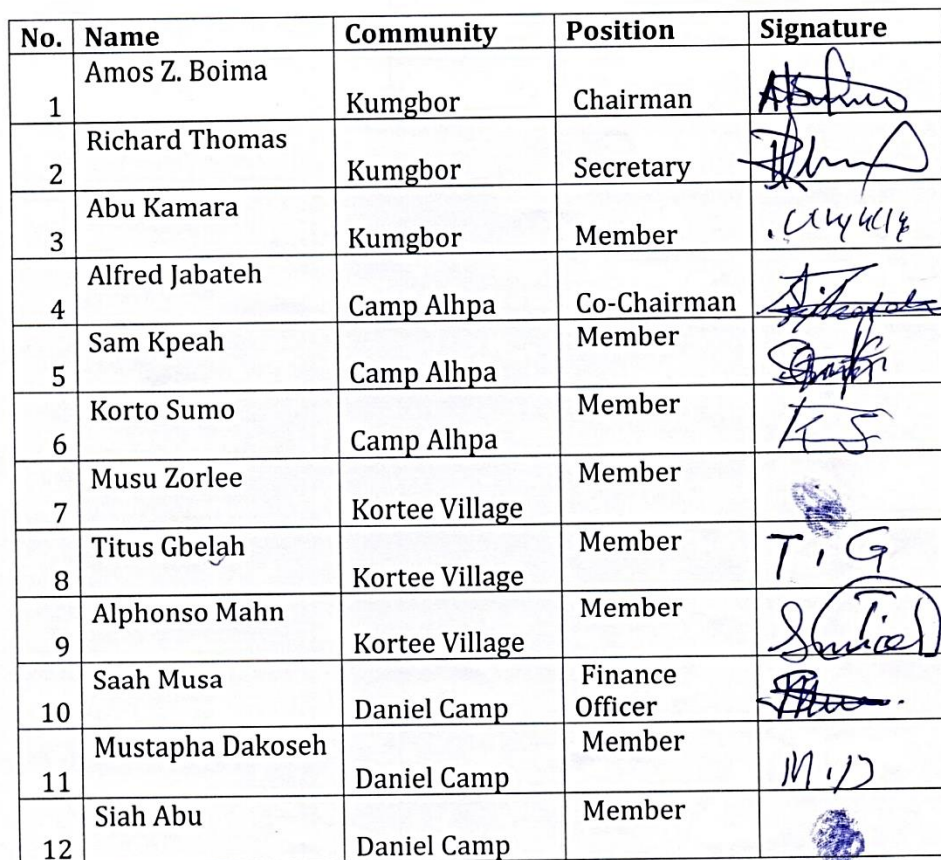 No. Name Community Position Signature
1 Amos Z. Boima Kumgbor Chairman
2 Richard Thomas Kumgbor Secretary
3 Abu Kamara Kumgbor Member
4 Alfred Jabateh Camp Alhpa Co-Chairman
5 Sam Kpeah Camp Alhpa Member
6 Korto Sumo Camp Alhpa Member KS
7 Musu Zorlee Kortee Village Member
8 Titus Gbelah Kortee Village Member T.G
9 Alphonso Mahn Kortee Village Member
10 Saah Musa Daniel Camp Finance
Officer
11 Mustapha Dakoseh Daniel Camp Member M.D
12 Siah Abu Daniel Camp Member